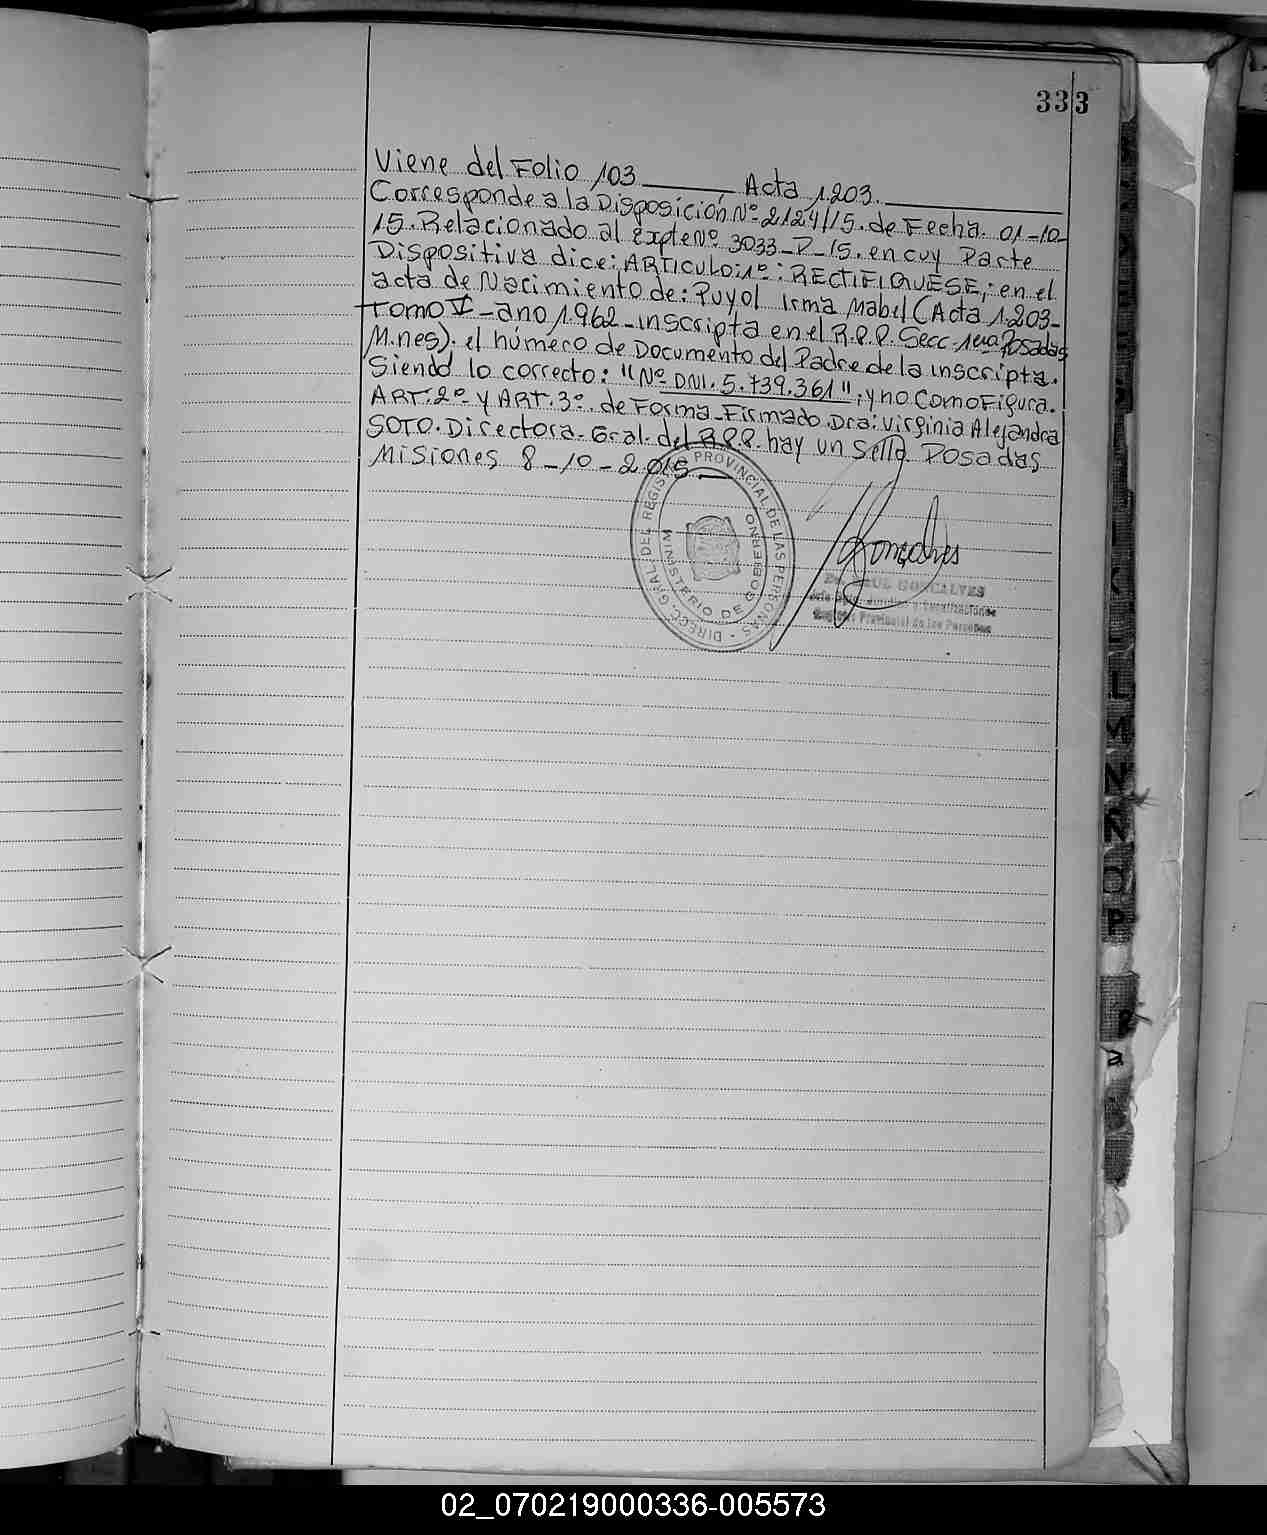 333
Viene del Folio 103 ______ Acta 1.203. ______
Corresponde a la Disposición Nº 2124/15. de Fecha. 01-10-
15. Relacionado al expte Nº 3033-P-15. en cuy Parte
Dispositiva dice: ARTICULO: 1º: RECTIFIQUESE,: en el
acta de Nacimiento de: Puyol Irma Mabel (Acta 1.203-
tomo V - año 1.962 - inscripta en el R.P.P. Secc. 1era Posadas
M.nes). el número de Documento del Padre de la inscripta.
Siendo lo correcto: "Nº DNI. 5.739.361", y no Como Figura.
ART. 2º y ART. 3º. de Forma - Firmado Dra: Virginia Alejandra
SOTO. Directora. Gral. del R.P.P. hay un Sello Posadas
Misiones 8-10-2015.
DIRECC. GRAL. DEL REGISTRO PROVINCIAL DE LAS PERSONAS -
MINISTERIO DE GOBIERNO
Goncalves
RAUL GONCALVES
Registro Provincial de las Personas
L
M
N
Ñ
O
P
02_070219000336-005573